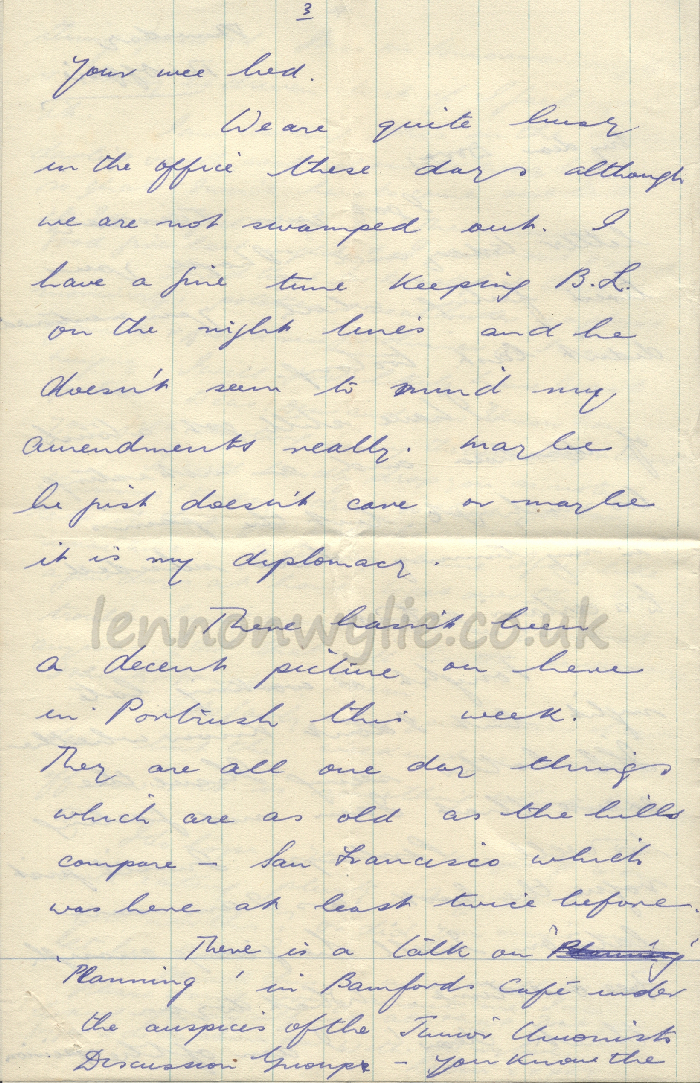 3
Your wee bed.
We are quite busy
in the office these days although
we are not swamped out. I
have a fine time keeping B.L.
on the right lines and he
doesn't seem to mind my
amendments really. Maybe
he just doesn't care or maybe
it is my diplomacy.
There hasn't been
lennonwylie.co.uk
a decent picture on here
in Portrush this week.
They are all one day things
which are as old as the hills
compare - San Francisco which
was here at least twice before.
There is a talk on 'Planning'
'Planning' in Bamfords Café under
the auspices of the Junior Unionists
Discussion Groups - you know the